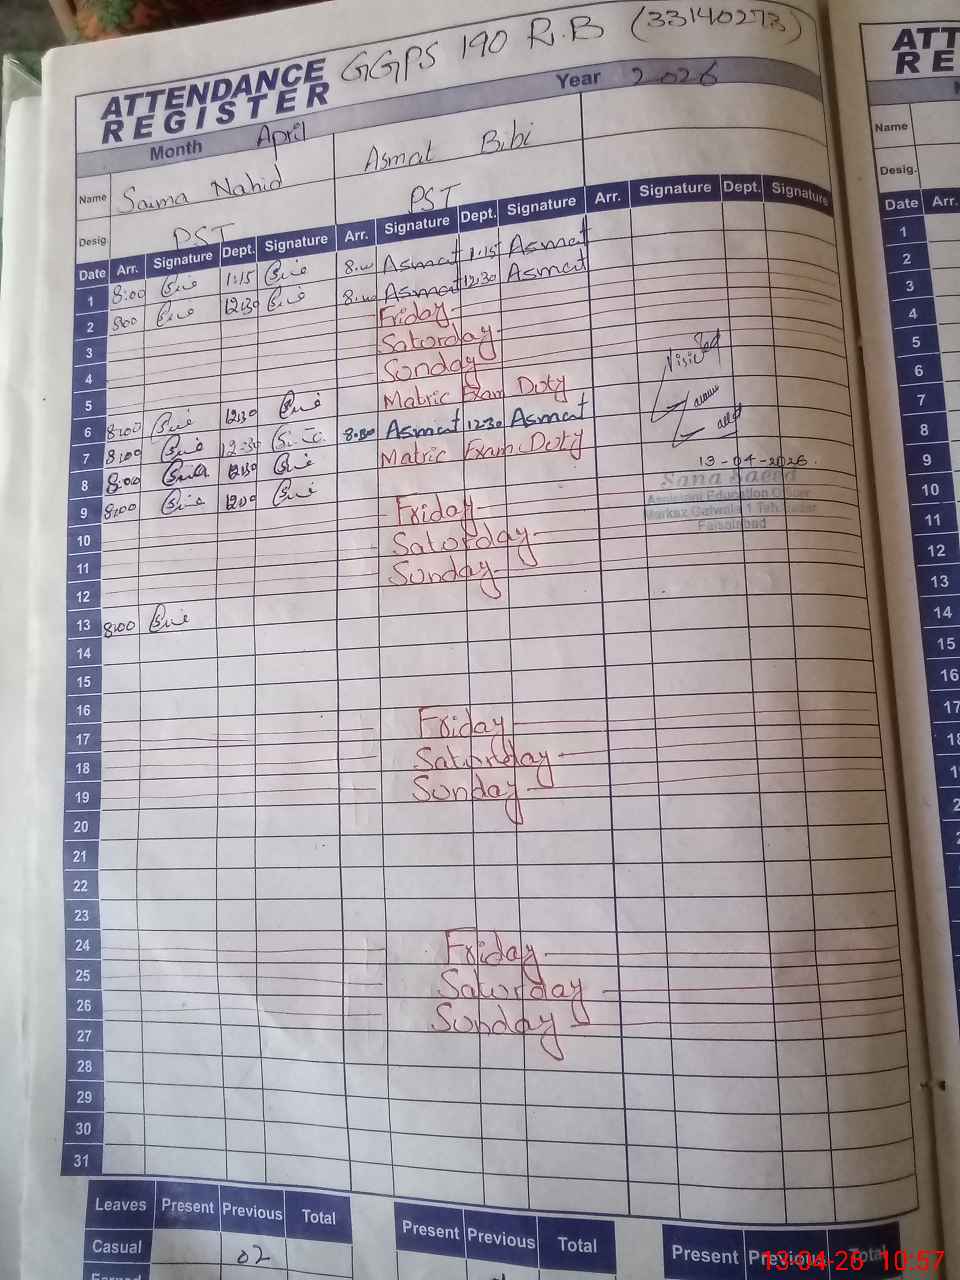 GGPS 190 R.B (33140273)
ATTENDANCE REGISTER
Month April Year 2026
Name Saima Nahid Asmat Bibi
Desig. PST PST
Date Arr. Signature Dept. Signature Arr. Signature Dept. Signature Arr. Signature Dept. Signature
1 8:00 1:15 8:00 Asmat 1:15 Asmat
2 8:00 12:30 8:00 Asmat 12:30 Asmat
3 Friday
4 Saturday
5 Sunday
6 8:00 12:30 Matric Exam Duty
7 8:00 12:30 8:00 Asmat 12:30 Asmat
8 8:00 12:30 Matric Exam Duty
9 8:00 12:00
10 Friday
11 Saturday
12 Sunday
13 8:00
14
15
16
17 Friday
18 Saturday
19 Sunday
20
21
22
23
24 Friday
25 Saturday
26 Sunday
27
28
29
30
31
Visited
13-04-2026.
Sana Saeed
Assistant Education Officer
Faisalabad
Leaves Present Previous Total Present Previous Total Present Previous Total
Casual 02
ATT
RE
Name
Desig.
Date Arr.
1
2
3
4
5
6
7
8
9
10
11
12
13
14
15
16
17
18
19
13-04-26 10:57